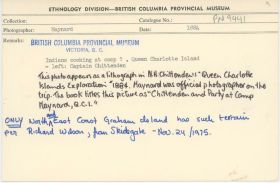 ETHNOLOGY DIVISION—BRITISH COLUMBIA PROVINCIAL MUSEUM
Collection:
Catalogue No.: PN 9441
Photographer: Maynard
Date: 1884
Remarks:
BRITISH COLUMBIA PROVINCIAL MUSEUM
VICTORIA, B. C.
Indians cooking at camp 1, Queen Charlotte Island
- left: Captain Chittenden
This photo appears as a lithograph in N.H. Chittenden's "Queen Charlotte
Islands Exploration" 1884. Maynard was official photographer on the
trip. The book titles this picture as "Chittenden and Party at Camp
Maynard, Q.C.I."
ONLY North East Coast Graham Island has such terrain
per Richard Wilson, from Skidegate - Nov. 24/1975.